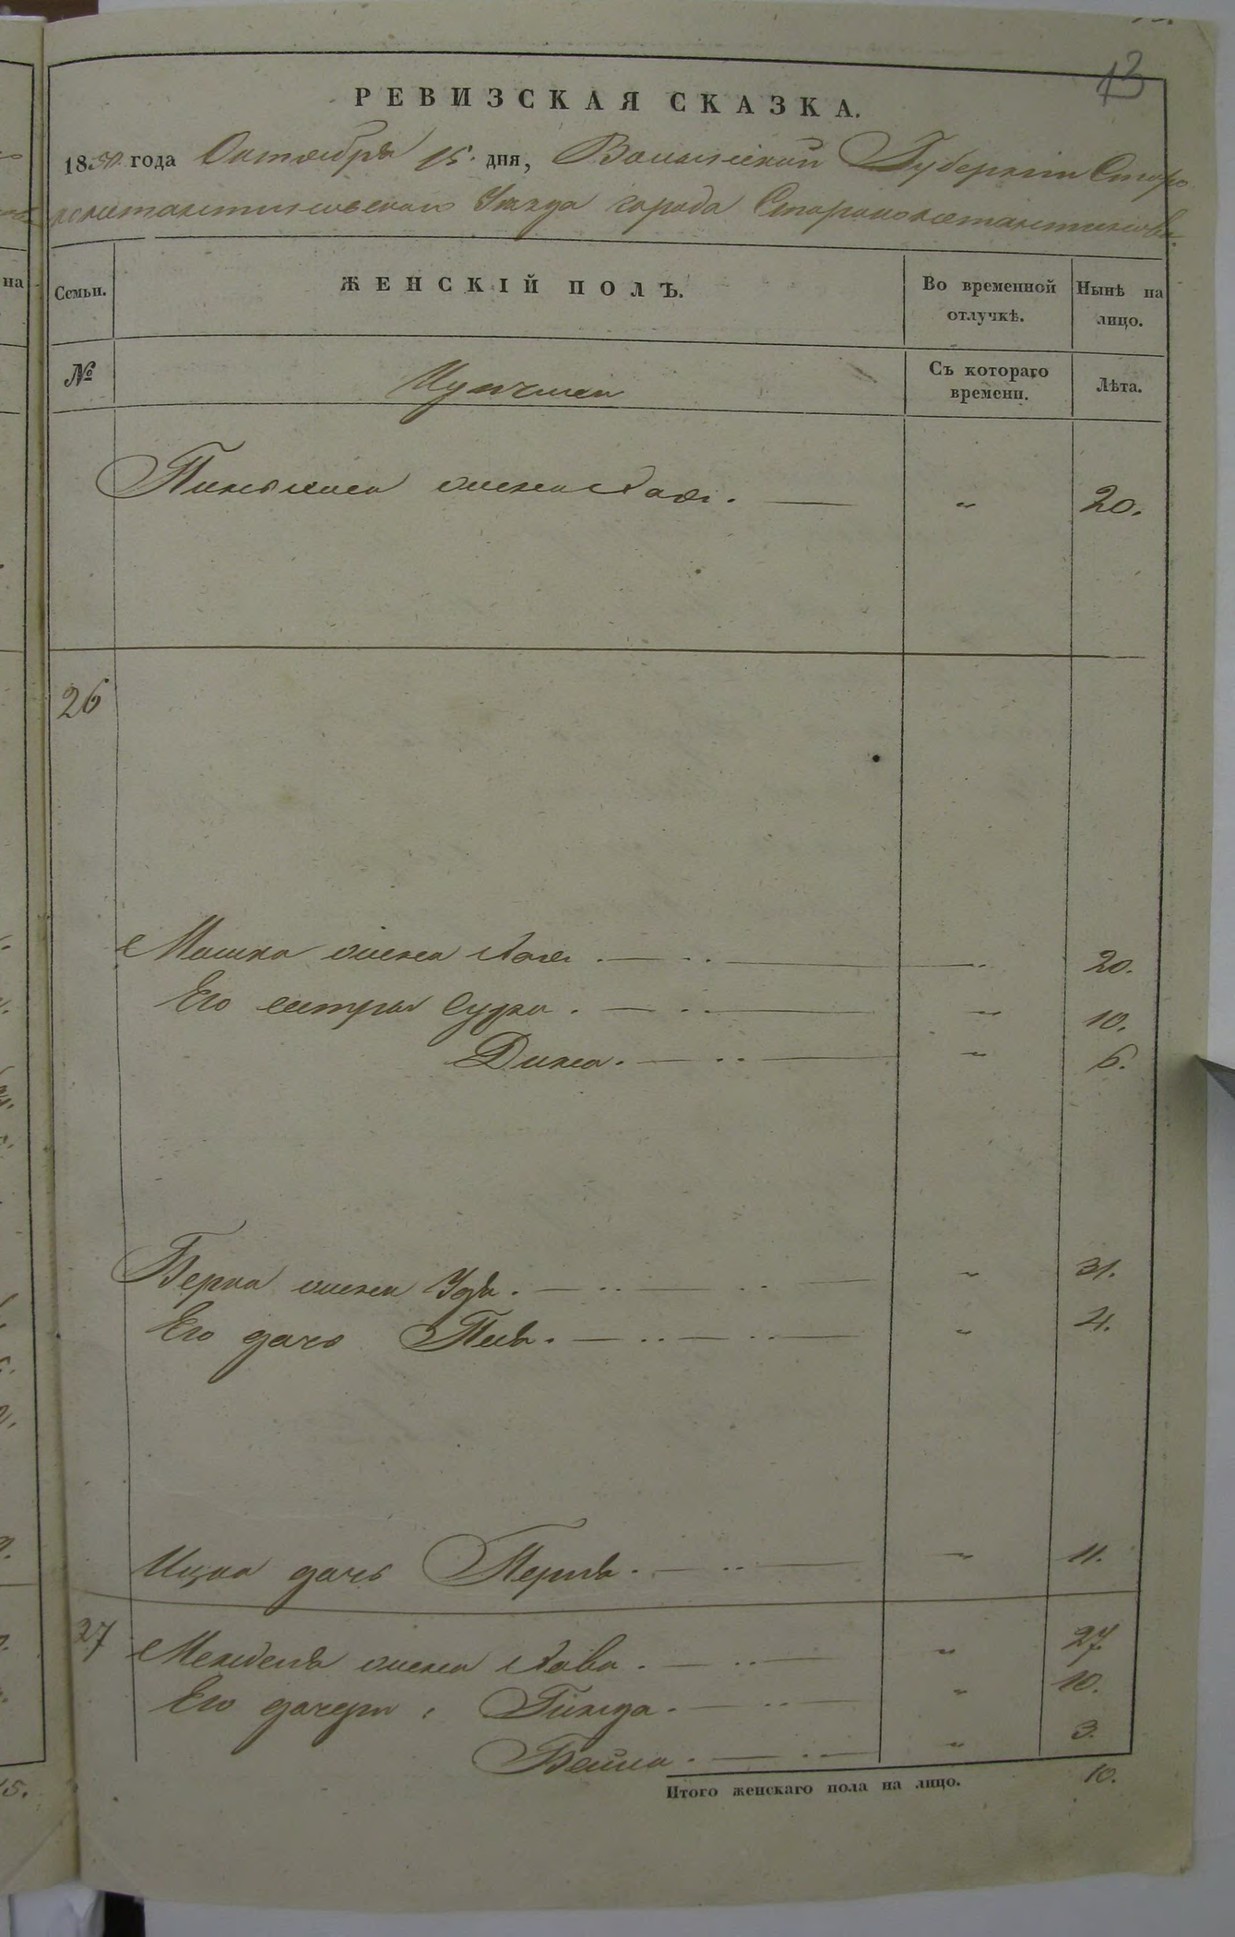 13
РЕВИЗСКАЯ СКАЗКА.
1850 года Октября 15. дня, Волынской Губернiи Старо
константиновскаго Уезда города Староконстантинова.
Семьи.
ЖЕНСКІЙ ПОЛЪ.
Во временной отлучкѣ.
Нынѣ на лицо.
№
Съ котораго времени.
Лѣта.
жена Хая. — " 20.
26
Мошка жена Хая. — 20.
Его сестры Сура. — " 10.
Дина. — " 6.
Берка жена Удя. — " 31.
Его дочь Песя. — " 4.
Ицка дочь Перля. — " 11.
27 Менделя жена Хава. — " 27.
Его дочери: Гинда. — " 10.
Бейла. — " 3.
Итого женскаго пола на лицо. 10.